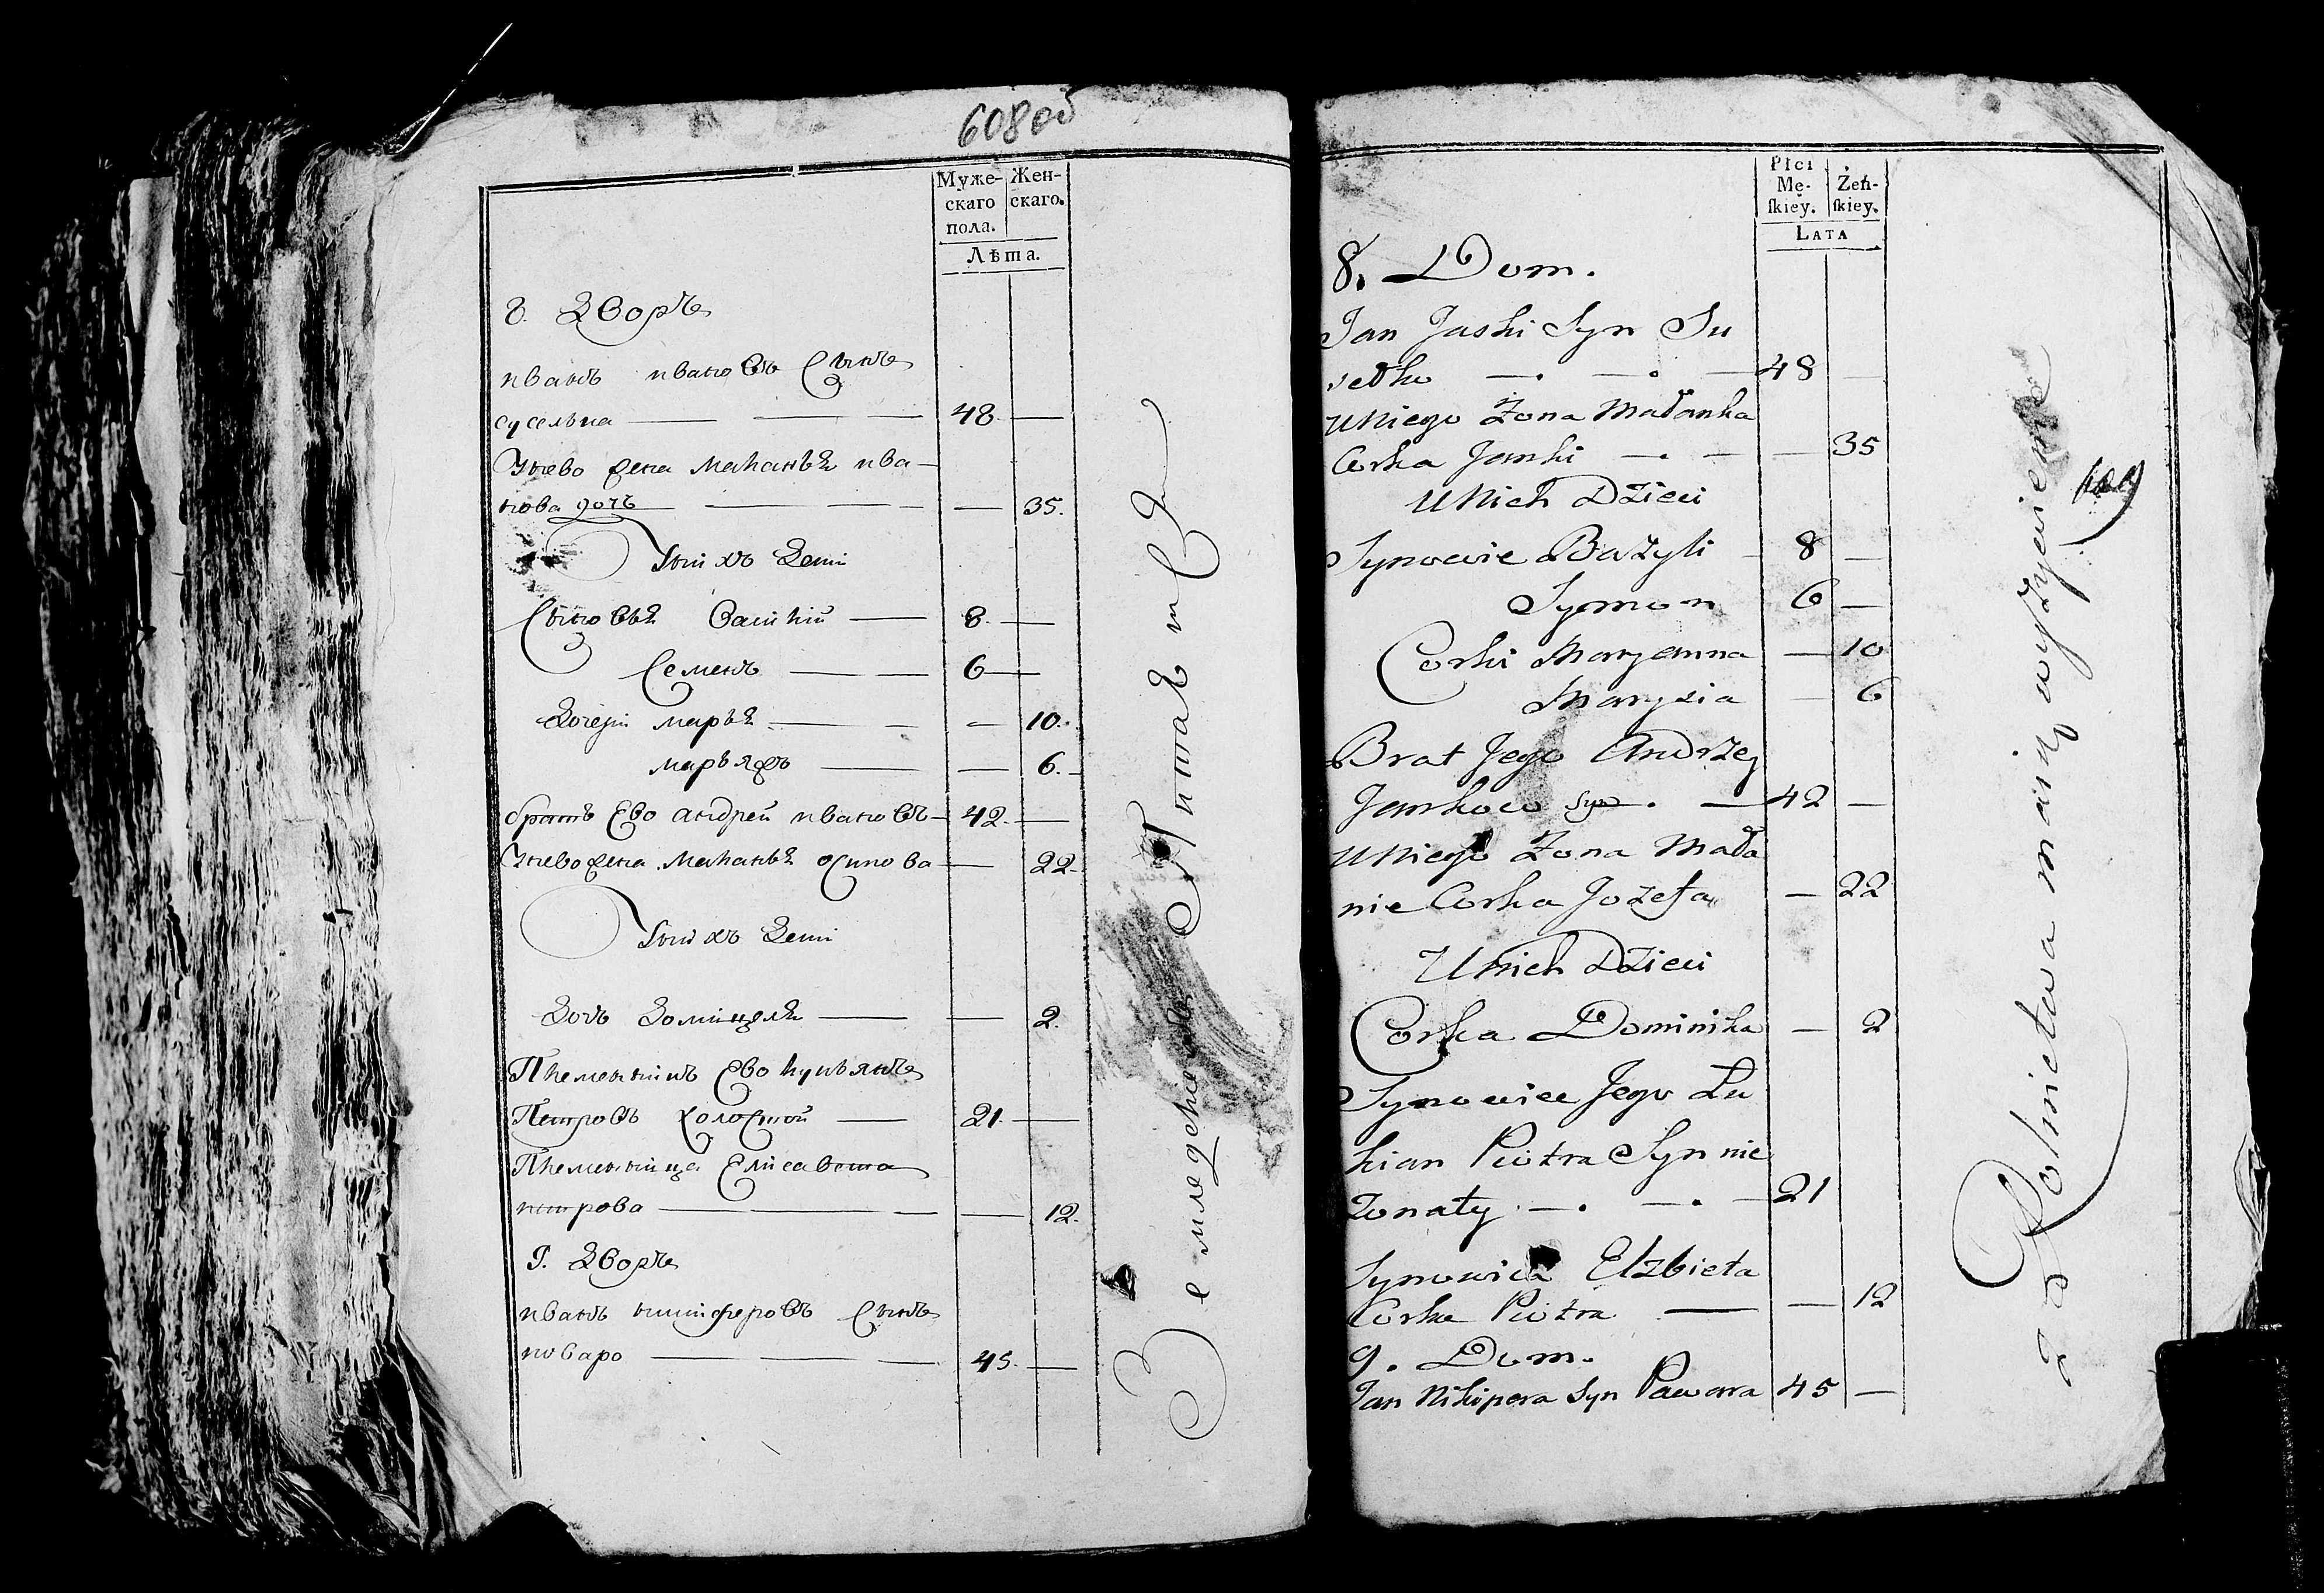 608 об
Муже-
скаго
пола.
Жен-
скаго.
Лѣта.
8. Дворъ
иванъ ивановъ Сынъ
суселька 48
Унево жена Маланья ива-
нова дочь 35.
Уних Дети
Сыновья Василий 8.
Семенъ 6
Дочери марья 10.
6.
братъ Ево андрей ивановъ 42
Унево жена Маланья Осипова 22
Уних Дети
Дочь 2.
Племянникъ Ево лукьянъ
Петровъ холостой 21.
Племянница Елисавета
петрова 12.
9. Дворъ
иванъ никифоровъ Сынъ
поваро 45.
Плci
Mę-
ſkiey.
Żeń-
ſkiey.
Lата
8. Dom.
Jan Jaski Syn Su
selko 48
U Niego Zona Madanka
Corka Janki 35
U Nich Dzieci
Synowie Bazyli 8
Symon 6
Corki Maryanna 10
Marysia 6
Brat Jego Andrzey
Jankow Syn 42
U Niego Zona Mada
nie Corka Jozefa 22
U Nich Dzieci
Corka Dominika 2
Synowiec Jego Lu
kian Piotra Syn nie
Zonaty 21
Synowica Elzbieta
Corka Piotra 12
9. Dom.
Jan Nikipora Syn Pawara 45
z Rolnictwa maią wyżywienie